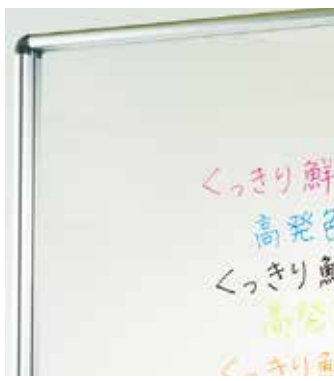 くっきり鮮
高発色
くっきり鮮
高発
くっきり鮮